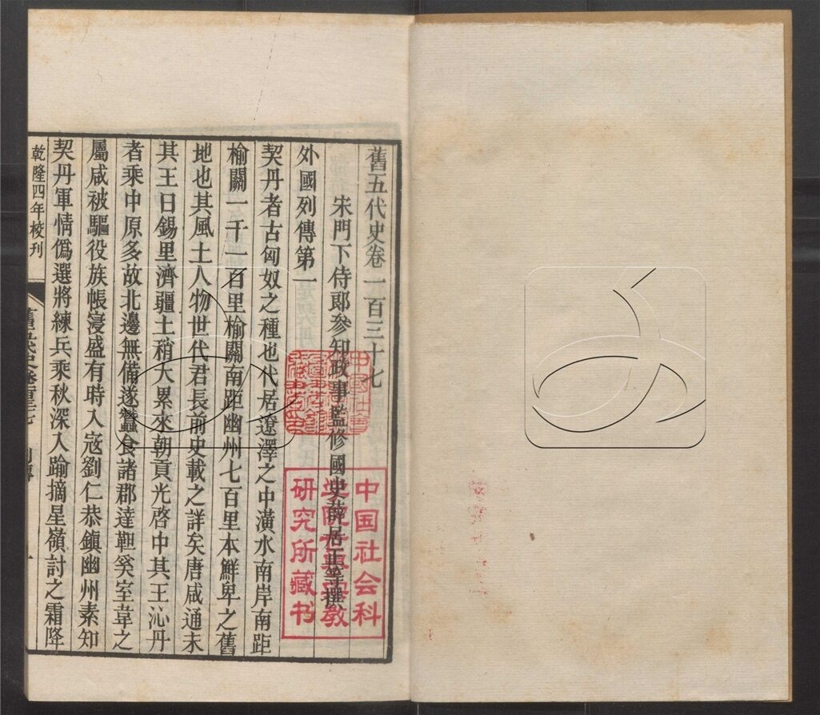 舊五代史卷一百三十七
宋門下侍郎參知政事監修國史薛居正等撰
外國列傳第一
契丹者古匈奴之種也代居遼澤之中潢水南岸南距
榆關一千一百里榆關南距幽州七百里本鮮卑之舊
地也其風土人物世代君長前史載之詳矣唐咸通末
其王曰錫里濟疆土稍大累來朝貢光啓中其王沁丹
者乘中原多故北邊無備遂蠶食諸郡達靼奚室韋之
屬咸被驅役族帳寖盛有時入寇劉仁恭鎮幽州素知
契丹軍情僞選將練兵乘秋深入踰摘星嶺討之霜降
乾隆四年校刊
中国社会科
研究所藏书